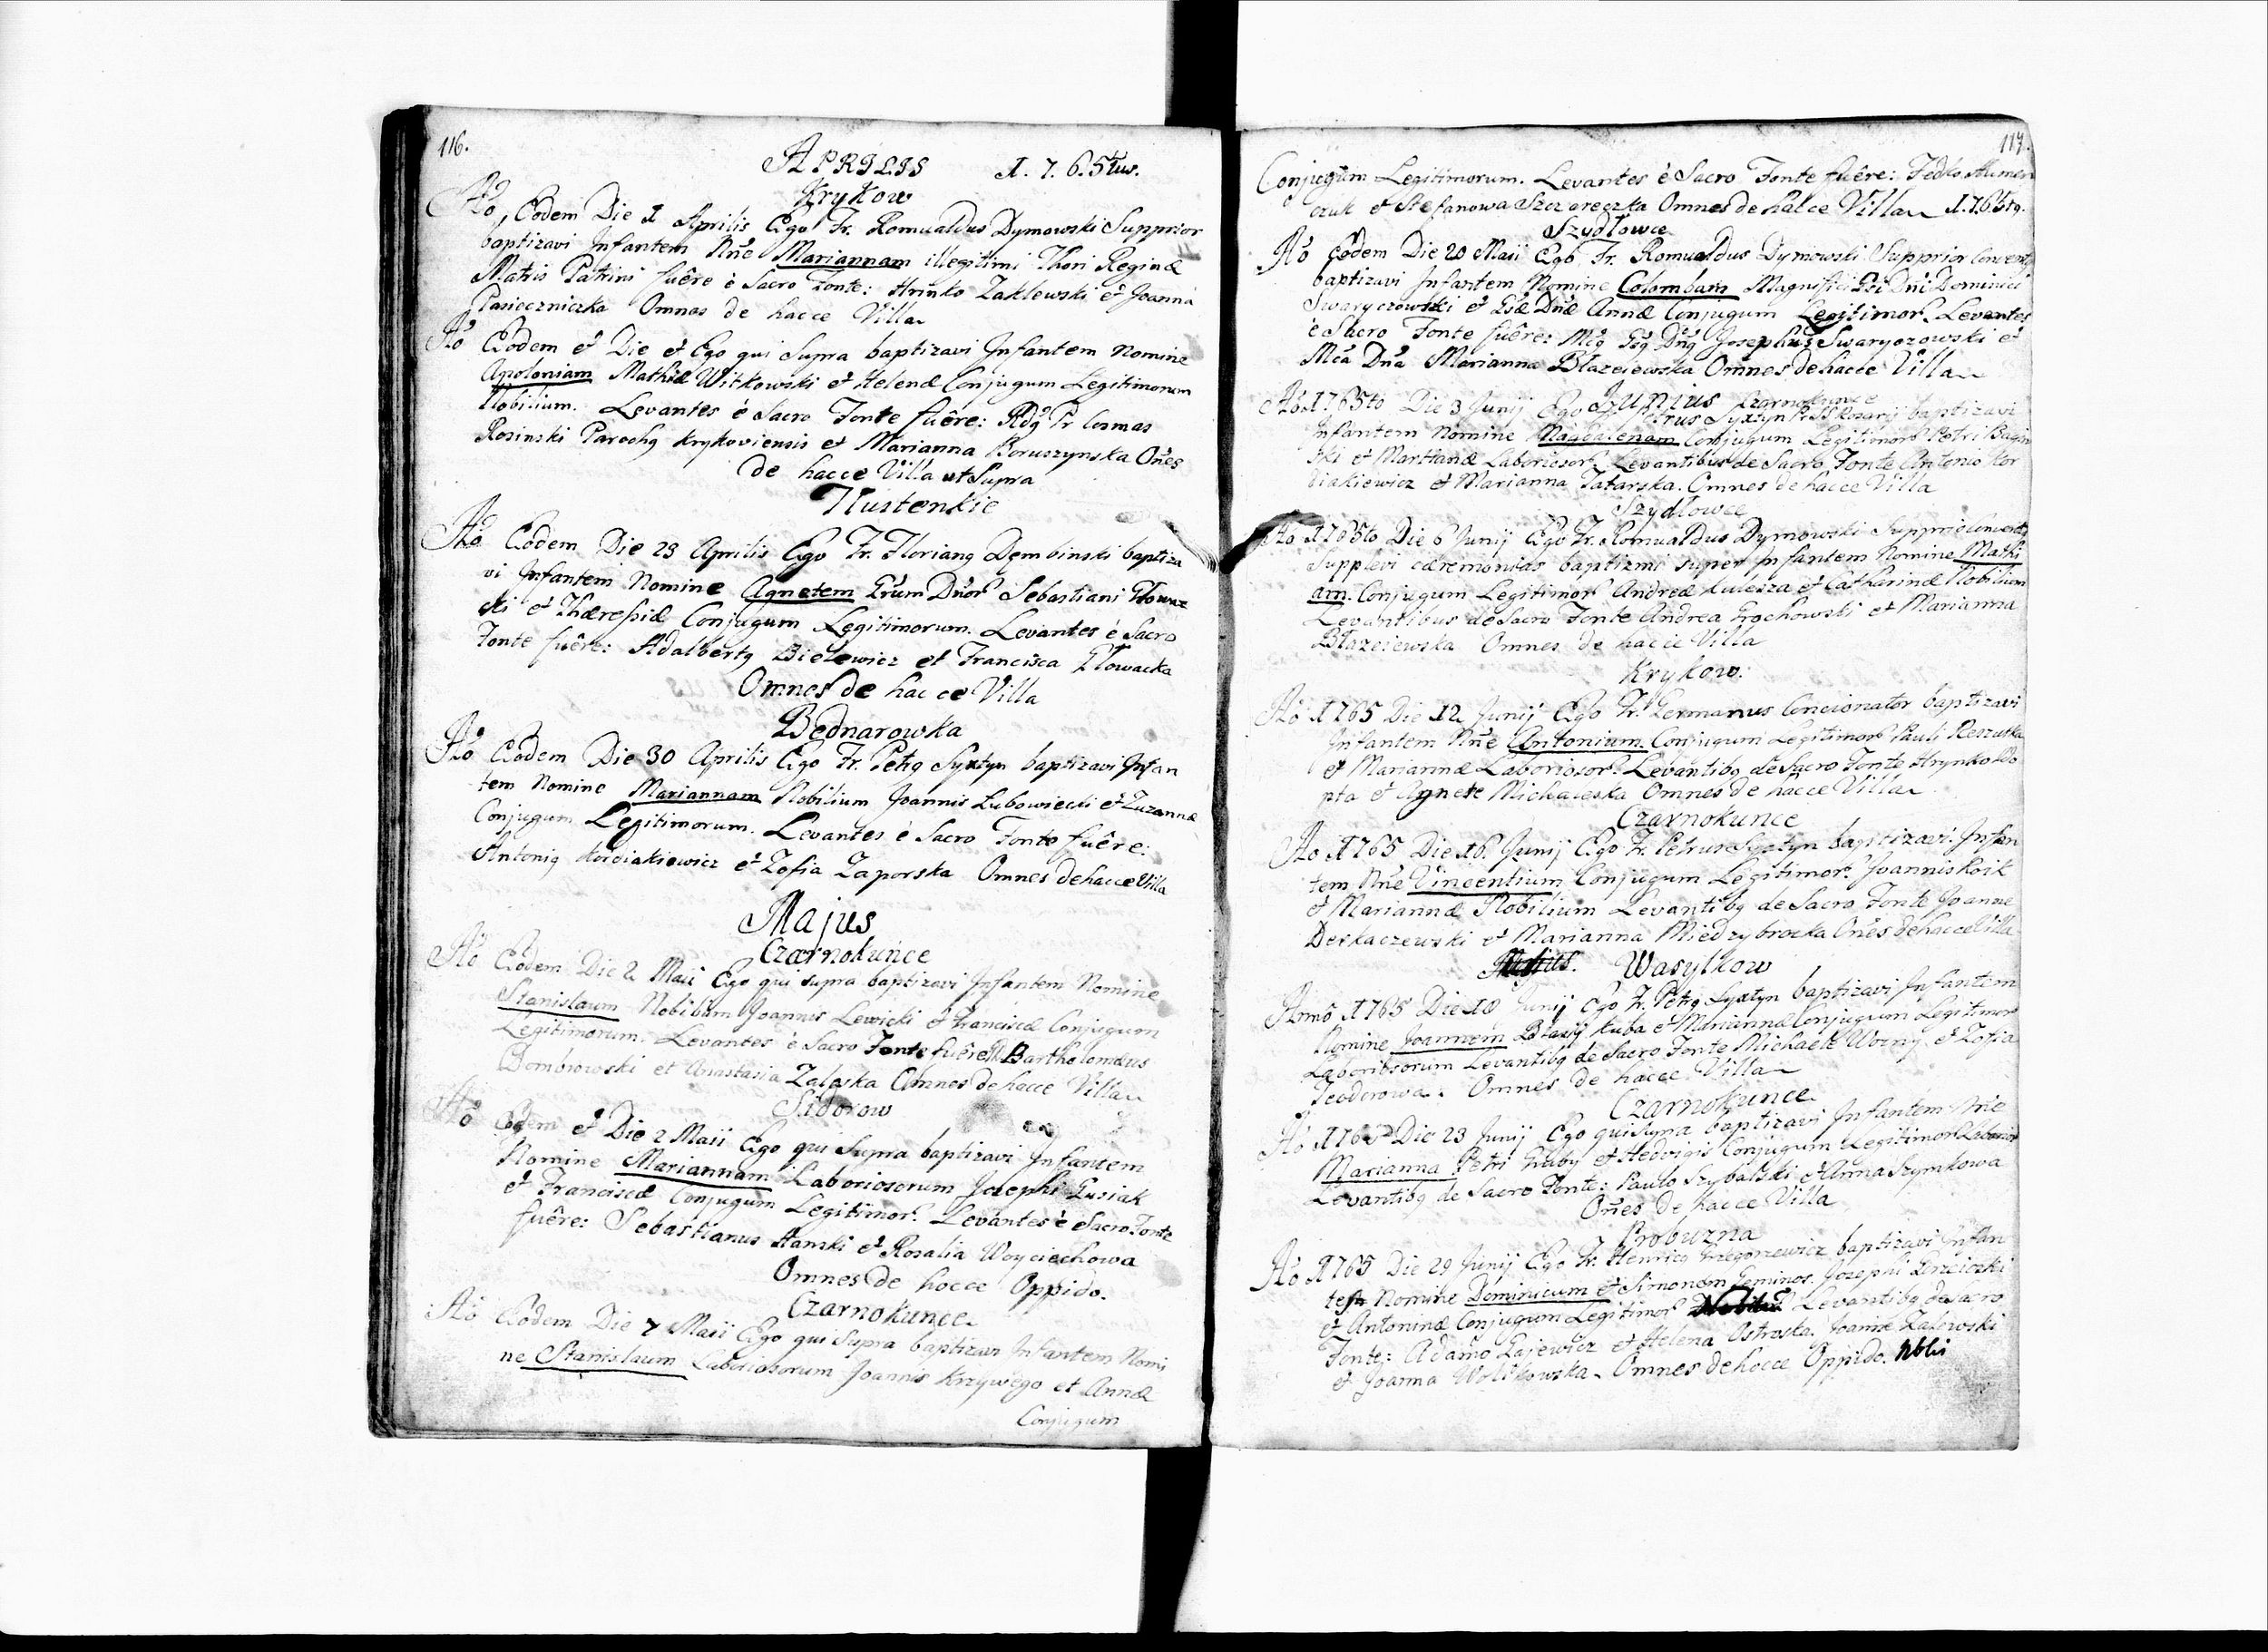 116.
APRILIS 1.7.65tus.
Krykow
Ao, Eodem Die 1 Aprilis Ego Fr. Romualdus Dymowski Supprior
baptizavi Infantem Nne Mariannam illegitimi Thori Reginæ
Matris Patrini fuêre è Sacro Fonte: Hrinko Zaklewski et Joanna
Pasieczniczka Omnes de hacce Villa
Ao Eodem et Die et Ego qui Supra baptizavi Infantem Nomine
Apoloniam Mathiæ Witkowski et Helenæ Conjugum Legitimorum
Nobilium. Levantes è Sacro Fonte fuêre: Rdg Pr Cosmas
Rosinski Parochg Krykoviensis et Marianna Boruszynska Oñes
de hacce Villa ut Supra
Tlustenkie
Ao Eodem Die 23 Aprilis Ego Fr. Floriang Dembinski baptiza
vi Infantem Nomine Agnetem Grum Dnor Sebastiani Głowac
cki et Thæressiæ Conjugum Legitimorum. Levantes è Sacro
Fonte fuêre: Adalbertg Bielewicz et Francisca Głowacka
Omnes de hac ce Villa
Bednarowka
Ao Eodem Die 30 Aprilis Ego Fr. Petrg Syxtyn baptizavi Infan
tem Nomine Mariannam Nobilium Joannis Lubowiecki et Zuzannæ
Conjugum Legitimorum. Levantes è Sacro Fonte fuêre:
Antonig Kordiakiewicz et Zofia Zaporska Omnes de hacce Villa
Majus
Czarnokunce
Ao Eodem Die 2 Maii Ego qui supra baptizavi Infantem Nomine
Stanislaum Nobilium Joannis Lewicki et Franciscæ Conjugum
Legitimorum. Levantes è Sacro Fonte fuêre Bartholomæus
Dombrowski et Anastasia Zaleska Omnes de hacce Villa
Sidorow
Ao Eodem et Die 2 Maii Ego qui Supra baptizavi Infantem
Nomine Mariannam Laboriosorum Josephi Gusiak
et Franciscæ Conjugum Legitimor. Levantes è Sacro Fonte
fuêre: Sebastianus Hamski et Rosalia Woyciechowa
Omnes de hocce Oppido.
Czarnokunce
Ao Eodem Die 7 Maii Ego qui Supra baptizavi Infantem Nomi
ne Stanislaum Laboriosorum Joannis Krzywego et Annæ
Conjugum
117.
Conjugum Legitimorum. Levantes è Sacro Fonte fuêre: Fedko
czuk et Stefanowa Omnes de hacce Villa 1.7.65tg.
Szydlowce
Ao Eodem Die 20 Maii Ego Fr. Romualdus Dymowski Supprior Convent
baptizavi Infantem Nomine Colombam Magnifici Gsi Dni Dominici
Swaryczowski et Gsæ Dnæ Annæ Conjugum Legitimor. Levantes
è Sacro Fonte fuêre: Mcg Gsg Dng Josephus Swaryczowski et
Mca Dna Marianna Błazeiewska Omnes de hacce Villa
Junius Czarnokunce
Ao 1765to Die 3 Junij Ego Petrus Syxtyn Pr SS Rosarij baptizavi
Infantem Nomine Magdalenam Conjugum Legitimor Petri Bagin
ski et Marthanæ Laboriosor. Levantibus de Sacro Fonte Antonio Kor
diakiewicz et Marianna Tatarska. Omnes de hacce Villa
Szydlowce
Ao 1765to Die 6 Junij Ego Fr. Romualdus Dymowski Supprio Convent
Supplevi cæremonias baptizmi super Infantem Nomine Mathi
am. Conjugum Legitimor Andreæ Kulesza et Catharinæ Nobilium
Levantibus de Sacro Fonte Andrea Grochowski et Marianna
Błazeiewska Omnes de hacce Villa
Krykow:
Ao 1765 Die 12 Junij Ego Fr. Germanus Concionator baptizavi
Infantem Nne Antonium Conjugum Legitimor Pauli Reszutka
et Mariannæ Laboriosor. Levantibg de Sacro Fonte Hrynko Ko
pta et Agnete Michaleska Omnes de hacce Villa
Czarnokunce
Ao 1765 Die 16. Junij Ego Fr. Petrus Syxtyn baptizavi. Infan
tem Nne Vincentium Conjugum Legitimor. Joannis Koik
et Mariannæ Nobilium Levantibg de Sacro Fonte Joanne
Derkaczewski et Marianna Miedzybrocka Oñes de hacce Villa
Wasylkow
Anno 1765 Die 18 Junij Ego Fr. Petrg Syxtyn baptizavi Infantem
Nomine Joannem Błazij Kuba et Mariannæ Conjugum Legitimor
Laboriosorum Levantibg de Sacro Fonte Michaele Wozny et Zofia
Teodorowa. Omnes de hacce Villa
Czarnokunce
Ao 1765 Die 23 Junij Ego qui Supra baptizavi Infantem Nne
Marianna Petri Gruby et Hedvigis Conjugum Legitimor Laborior
Levantibg de Sacro Fonte: Paulo Szybalski et Anna Szymkowa
Oñes de hacce Villa
Probuzna
Ao 1765 Die 29 Junij Ego Fr. Henricg Grzegorzewicz baptizavi Infan
tes Nomine Dominicum et Simonem Geminos. Josephi
et Antoninæ Conjugum Legitimor Levantibg de Sacro
Fonte: Adamo Gajewicz et Helena Ostroska. Joanne Zadowski
et Joanna Wolikowska. Omnes de hocce Oppido. Nbli